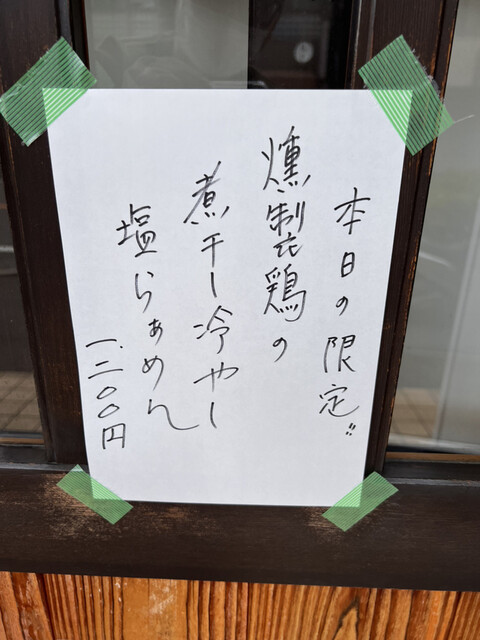 本日の限定!!
燻製鶏の
煮干し冷やし
塩らぁめん
一.三〇〇円